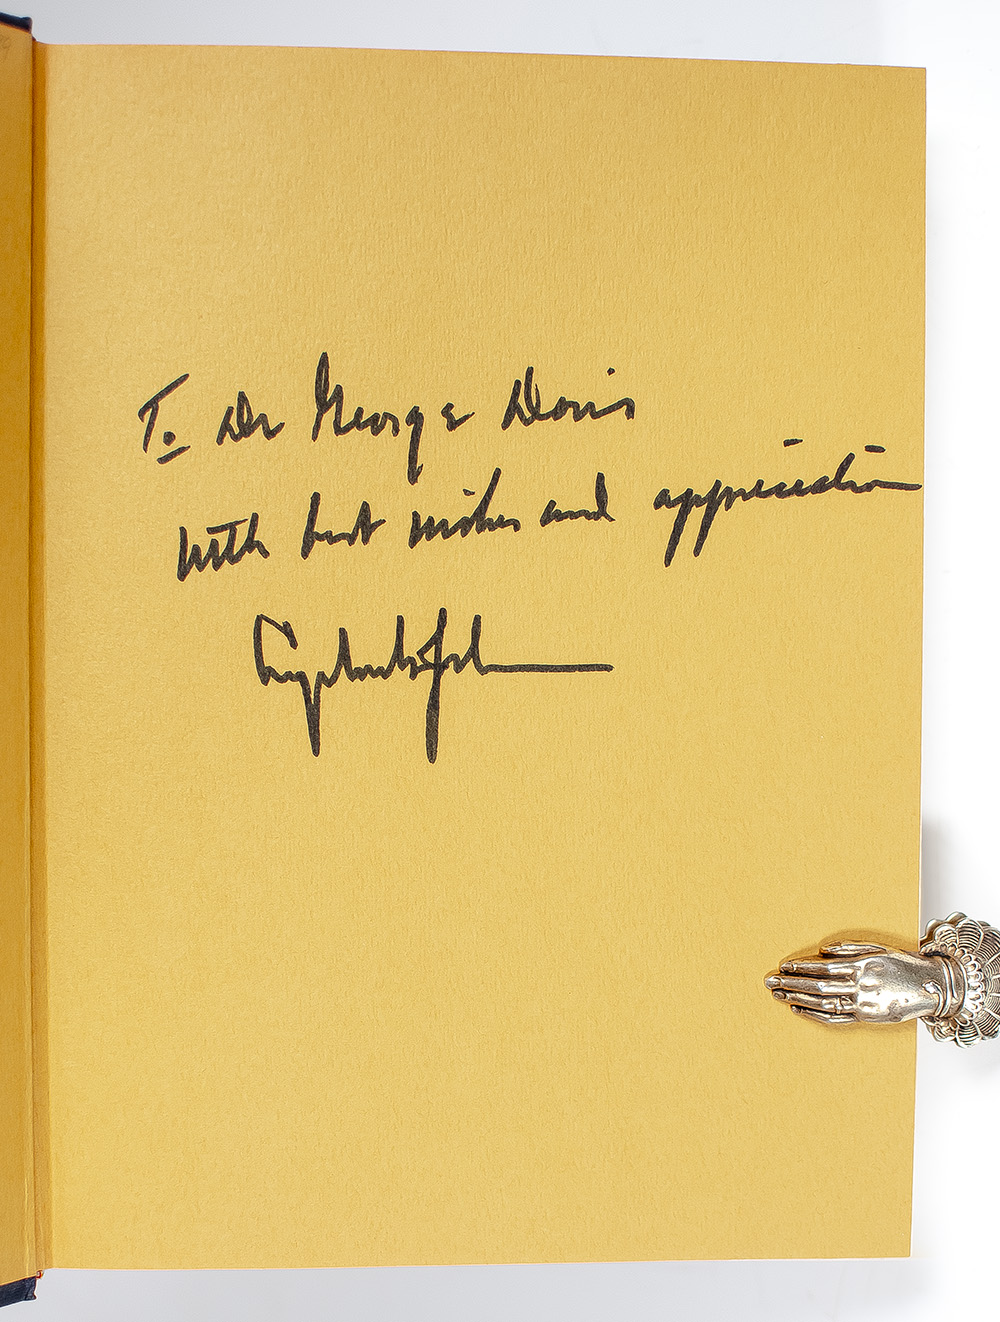 To Dr George Davis
with best wishes and appreciation
Lyndon B Johnson